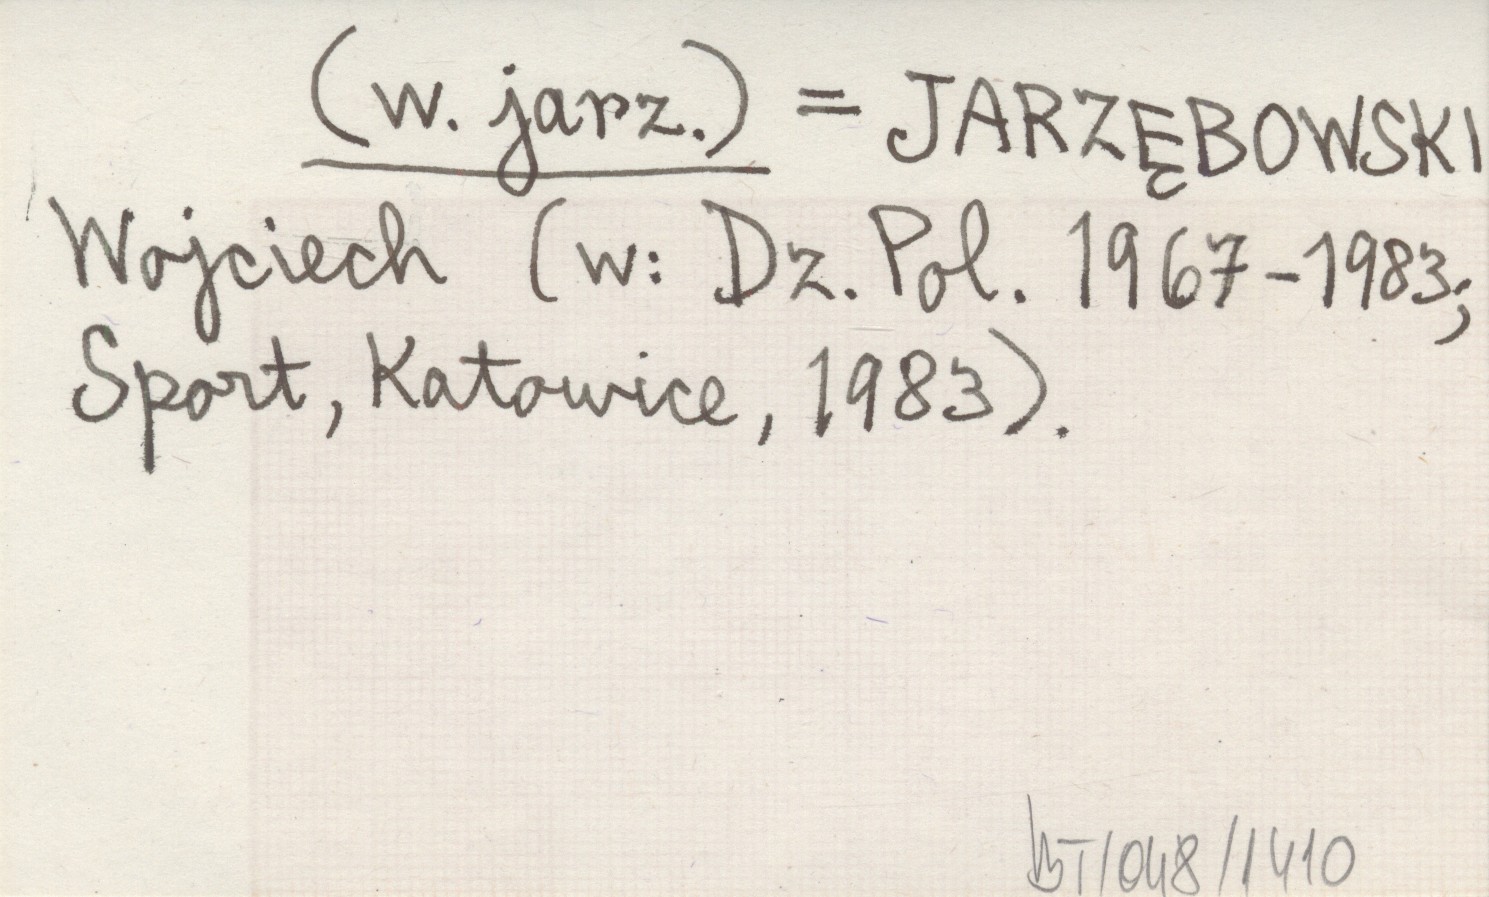 (w. jarz.) = JARZĘBOWSKI
Wojciech (w: Dz. Pol. 1967-1983;
Sport, Katowice, 1983).
BT/048/1410